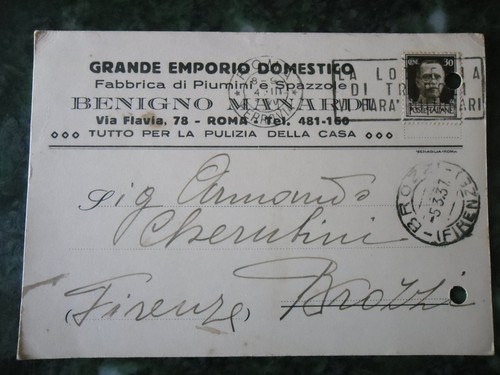 GRANDE EMPORIO DOMESTICO
Fabbrica di Piumini e Spazzole
BENIGNO MANARDI
Via Flavia, 78 - ROMA - Tel. 481-160
TUTTO PER LA PULIZIA DELLA CASA
CENT 30
LA LO
DI TR
Sig Armando
Cherubini
(Firenze) Brozzi
BRO
-5.3.37
(FIRENZE)